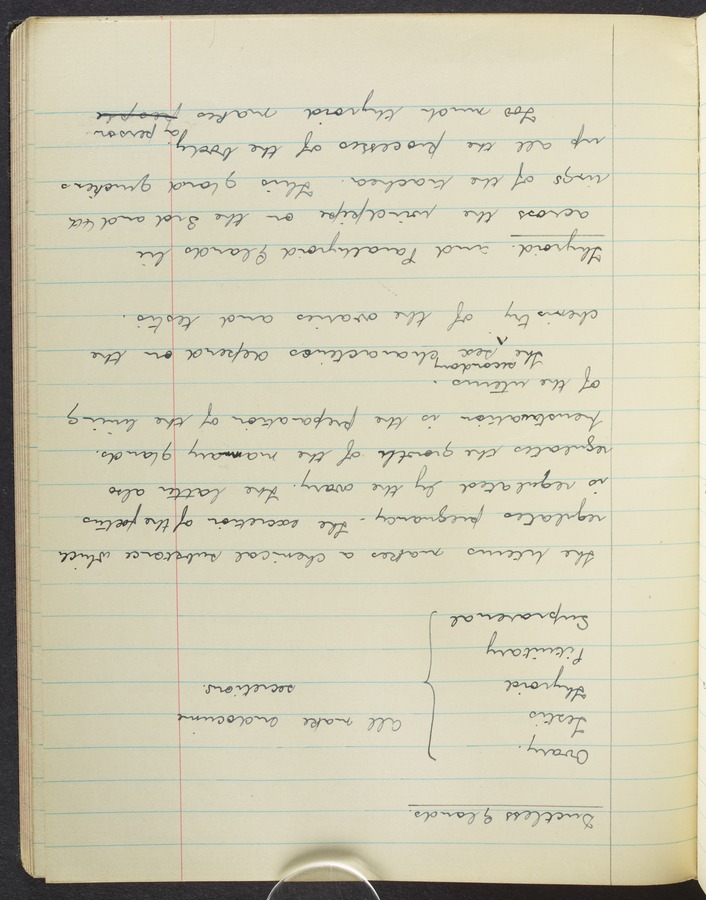 Ductless Glands.
Ovary.
Testis
Thyroid
Pituitary
Suprarenal
all make endocrine
secretions.
the uterus makes a chemical substance which
regulates pregnancy - the excretion of the foetus
is regulated by the ovary. The latter also
regulates the growth of the mammary glands.
Menstruation is the preparation of the lining
of the uterus.
The secondary sex characters depend on the
chemistry of the ovaries and testis.
Thyroid. and Parathyroid Glands lie
across the windpipe on the 3rd and 4th
rings of the trachea. This gland quickens
up all the processes of the body.
Too much thyroid makes people a person